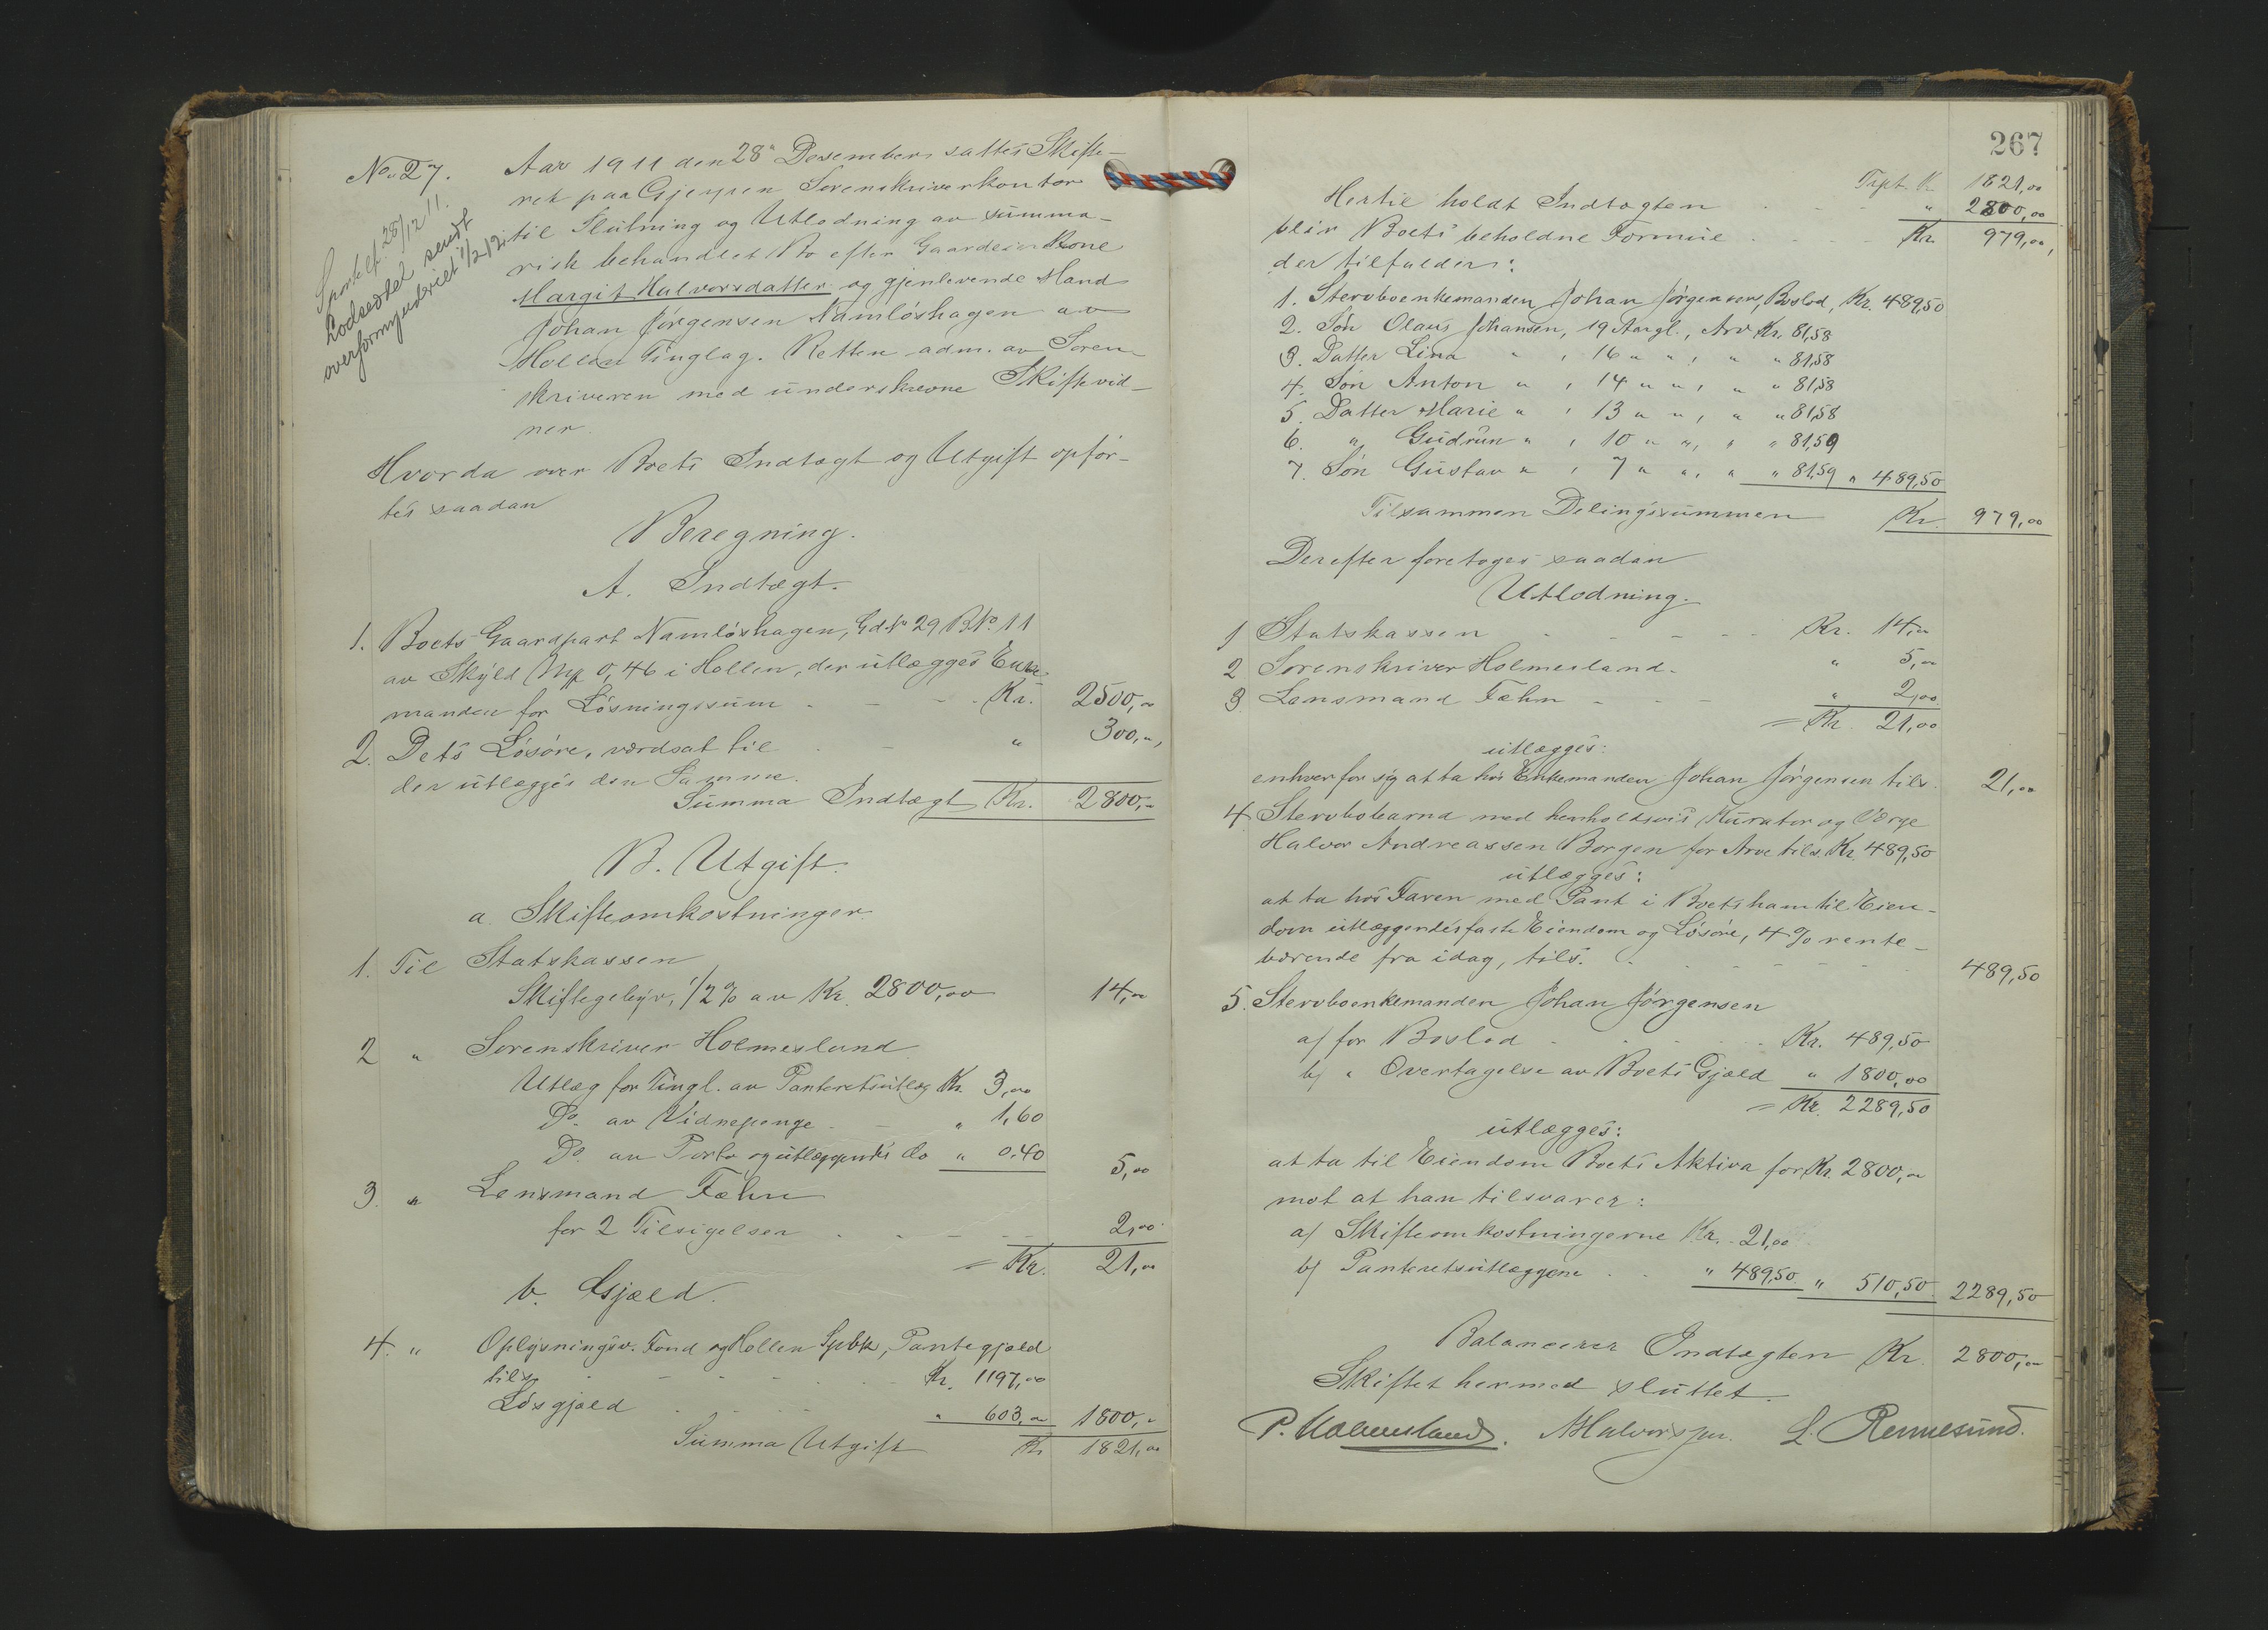 No. 27.
Sportelf. 28/12 11.
Lodseddel sendt
overformynderiet 1/2 12.
Aar 1911 den 28. Desember sattes Skifte-
ret paa Gjerpen Sorenskriverkontor
til Slutning og Utlodning av summa-
risk behandlet Bo efter Gaardeier Kone
Margit Halvorsdatter og gjenlevende Mand
Johan Jørgensen Namløshagen av
Hollen Tinglag. Retten adm. av Soren-
skriveren med underskrevne Skiftevid-
ner.
Hvorda over Boets Indtægt og Utgift opfør-
tes saadan
Beregning.
A. Indtægt.
1. Boets Gaardpart Namløshagen, Gd. No 29 B.No. 11
av Skyld Mrk 0,46 i Hollen, der utlægges Enke-
manden for Løsningssum - - - Kr. 2500,00
2. Dets Løsøre, værdsat til - - " 300,00,
der utlægges den Samme.
Summa Indtægt Kr. 2800,00
B. Utgift.
a. Skifteomkostninger.
1. Til Statskassen
Skiftegebyr, 1/2 % av Kr. 2800,00 14,00
2 " Sorenskriver Holmesland
Utlæg for Tingl. av Panteretsutlæg Kr. 3,00
Do. av Vidnepenge - - " 1,60
Do. av Porto og utlæggendes do " 0.40 5,00
3. " Lensmand Fæhn
for 2 Tilsigelser - - - - 2,00
= Kr. 21,00
b. Gjæld.
4. " Oplysningsv. Fond og Hollen Spbk, Pantegjæld
tils. - - - - Kr. 1197,00
Løsgjæld - - - - " 603,00 1800,00
Summa Utgift Kr 1821,00
267
Trpt. Kr. 1821,00
Hertil holdt Indtægten - - - " 2800,00
blir Boets beholdne Formue - - - - Kr. 979,00,
der tilfalder:
1. Stervboenkemanden Johan Jørgensen, Boslod, Kr. 489,50
2. Søn Olaus Johansen, 19 Aargl., Arv Kr. 81,58
3. Datter Lina " , 16 " " , " " 81,58
4. Søn Anton " , 14 " " , " " 81,58
5. Datter Marie " , 13 " " , " " 81,58
6. " Gudrun " , 10 " " , " " 81,59
7. Søn Gustav " , 7 " " , " " 81,59 " 489,50
Tilsammen Delingssummen Kr. 979,00
Derefter foretoges saadan
Utlodning.
1 Statskassen - - - - Kr. 14,00
2 Sorenskriver Holmesland - " 5,00
3 Lensmand Fæhn - - - " 2,00
= Kr. 21,00
utlægges:
enhver for sig at ta hos Enkemanden Johan Jørgensen tils. 21,00
4 Stervbobarna med henholdsvis Kurator og Værge
Halvor Andreassen Borgen for Arv tils. Kr. 489,50
utlægges:
at ta hos Faren med Pant i Boets ham til Eien-
dom utlæggendes faste Eiendom og Løsøre, 4 % rente-
bærende fra idag, tils. - - - - - - 489,50
5. Stervboenkemanden Johan Jørgensen
a) for Boslod - - - - Kr. 489,50
b) " Overtagelse av Boets Gjæld " 1800,00
= Kr. 2289,50
utlægges:
at ta til Eiendom Boets Aktiva for Kr. 2800,00
mot at han tilsvarer:
a) Skifteomkostningerne Kr. 21,00
b) Panteretsutlæggene - - " 489,50 " 510,50 2289,50
Balancerer Indtægten Kr. 2800,00
Skiftet hermed sluttet.
P. Holmesland. A Halvorsen. L. Rennesund.